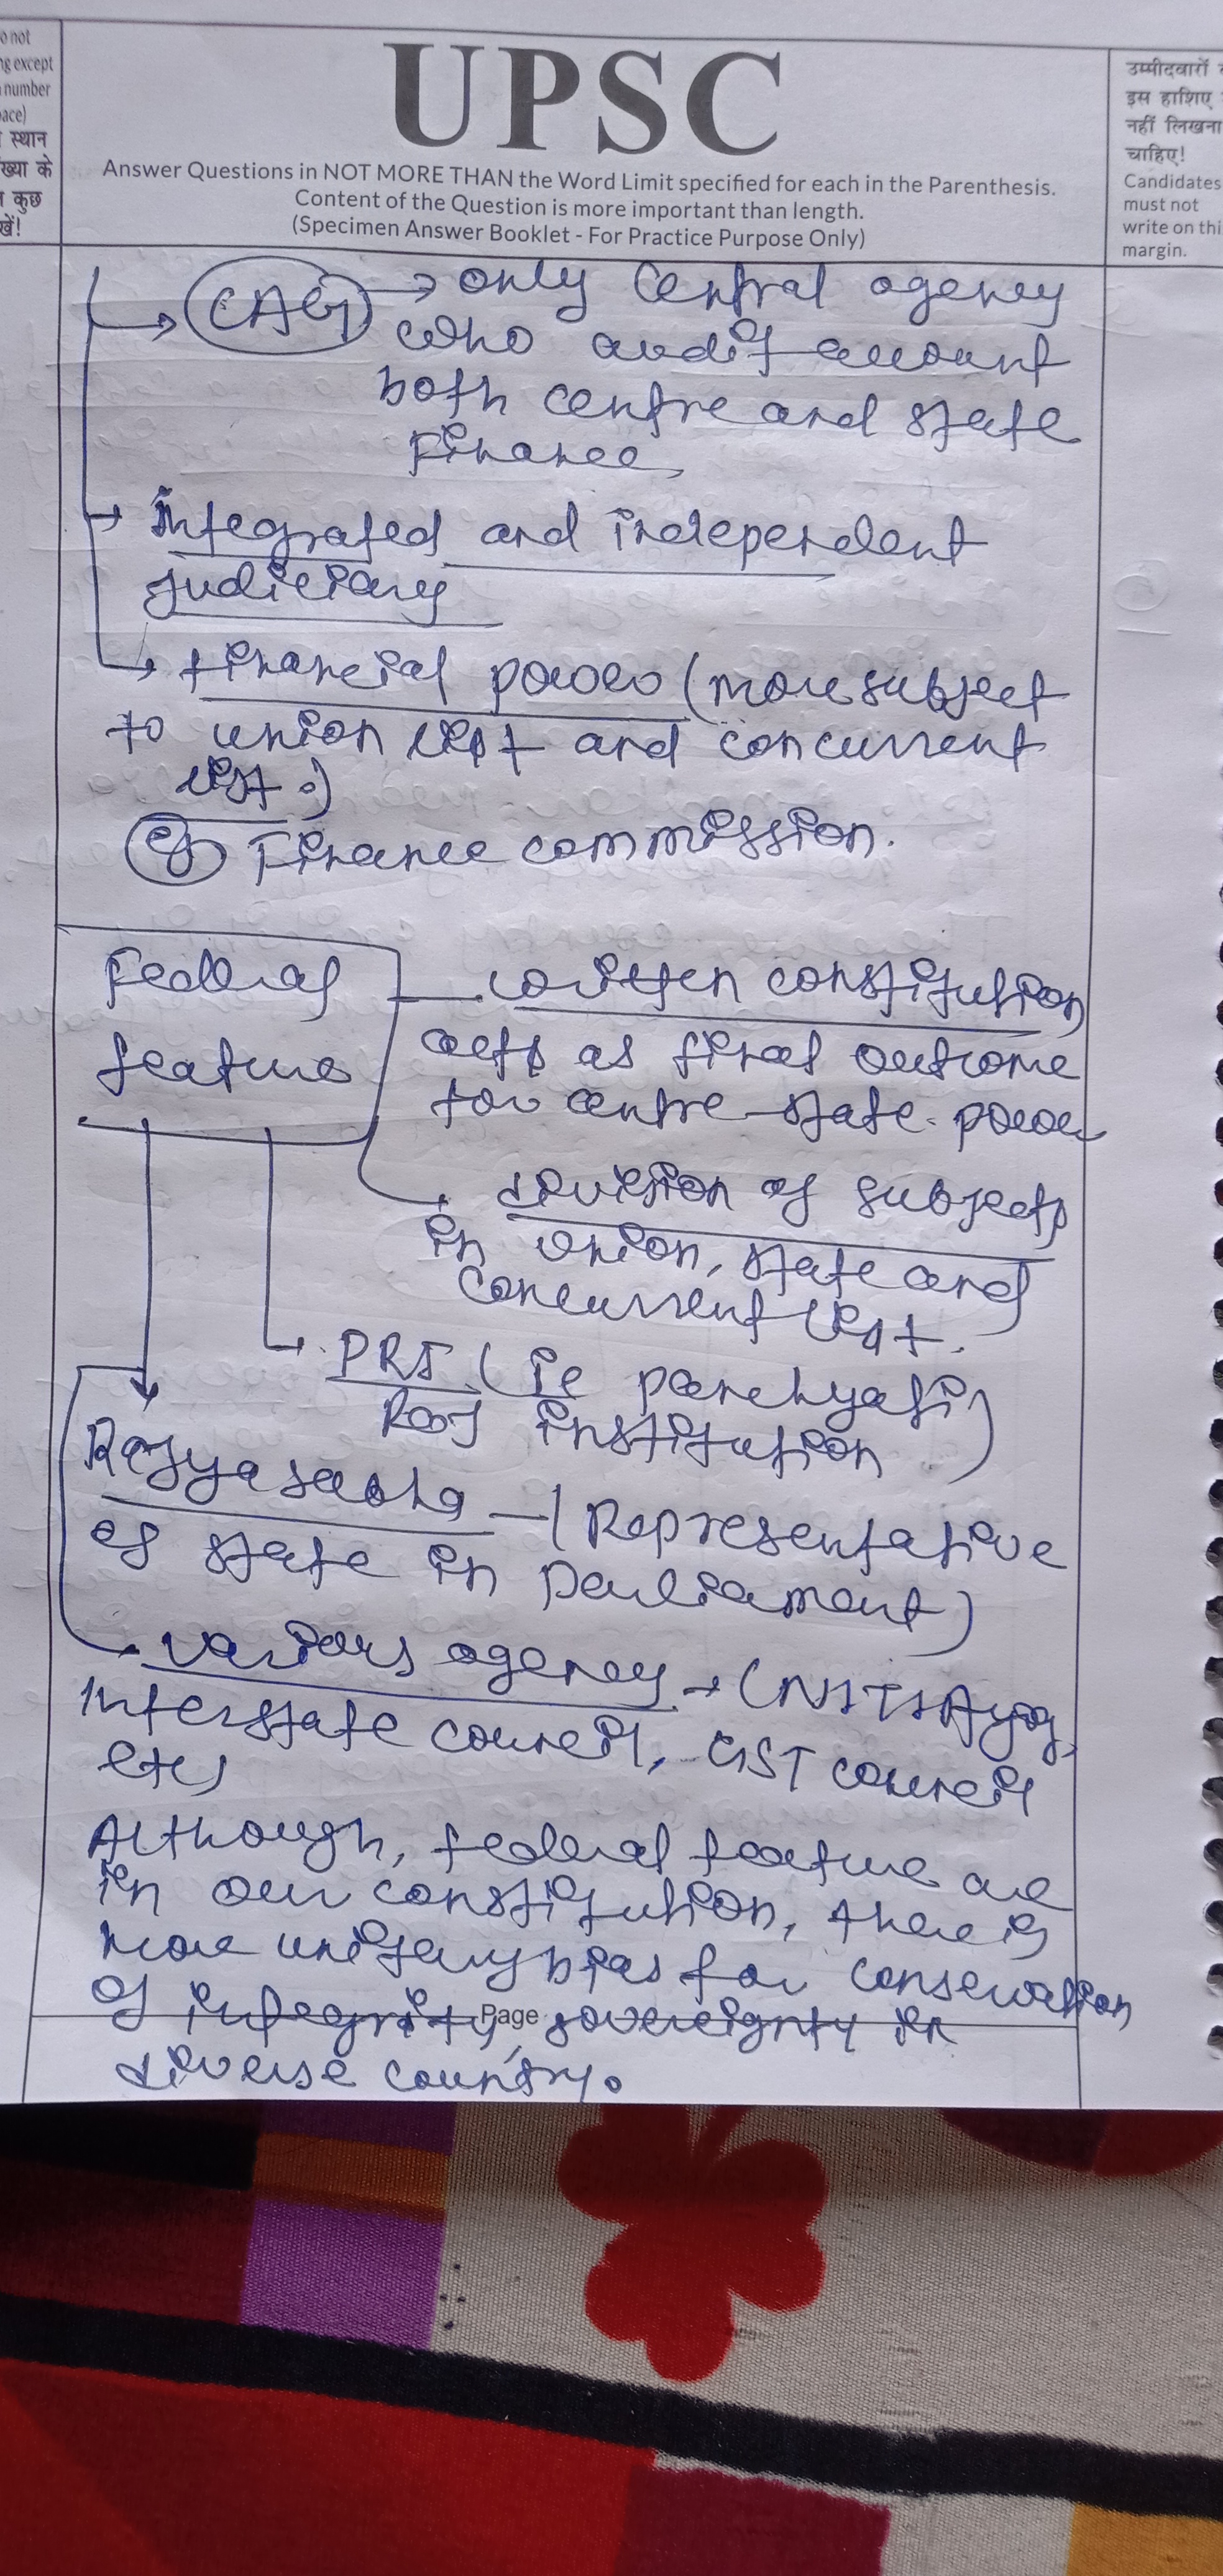 o not
ng except
number
pace)
स्थान
ख्या के
कुछ
खें!
UPSC
Answer Questions in NOT MORE THAN the Word Limit specified for each in the Parenthesis.
Content of the Question is more important than length.
(Specimen Answer Booklet - For Practice Purpose Only)
उम्मीदवारों
इस हाशिए
नहीं लिखना
चाहिए!
Candidates
must not
write on thi
margin.
CAG → only Central agency
who audit account
both centre and state
Finance,
→ Integrated and independent
judiciary
→ Financial power (more subject
to union list and concurrent
list.)
eg Finance commission.
Federal
feature
written constitution
acts as final outcome
for centre-state power
division of subjects
in union, state and
concurrent list.
PRI (ie panchyati
Raj institution)
Rajya sabha — (Representative
of state in Parliament)
various agency → (NITI Ayog,
Interstate council, GST council
etc)
Although, federal feature are
in our constitution, there is
more unitary bias for conservation
of integrity, sovereignty in
Page
diverse country.